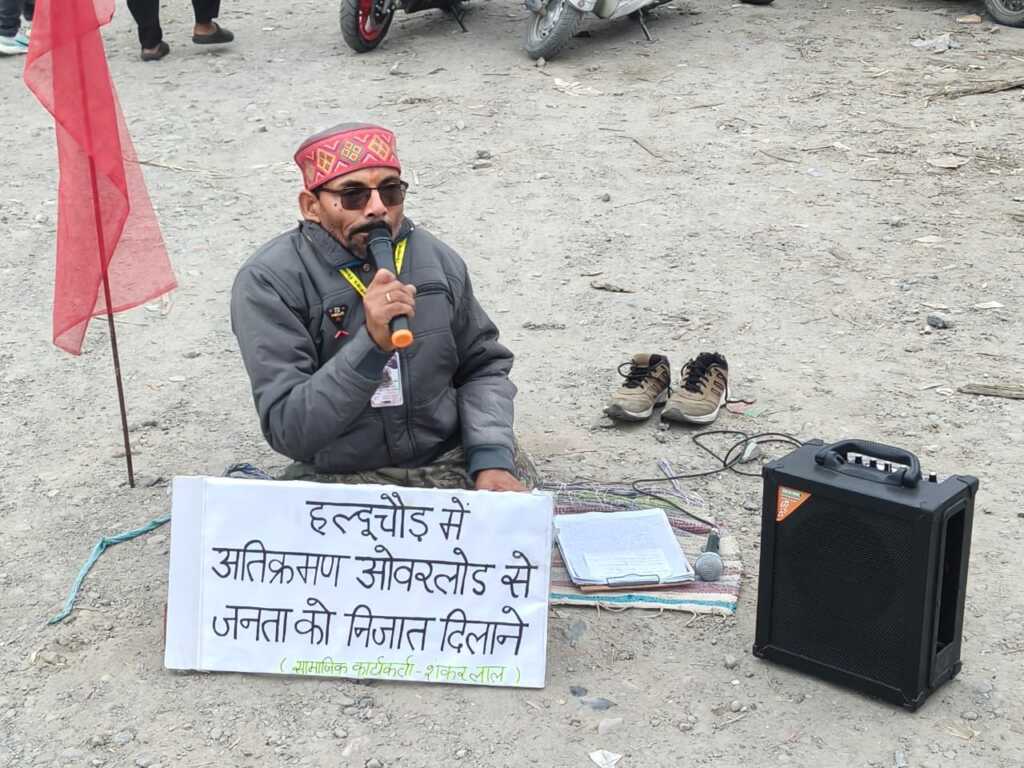 हल्दूचौड़ में
अतिक्रमण ओवरलोड से
जनता को निजात दिलाने
( सामाजिक कार्यकर्ता - शंकर लाल )